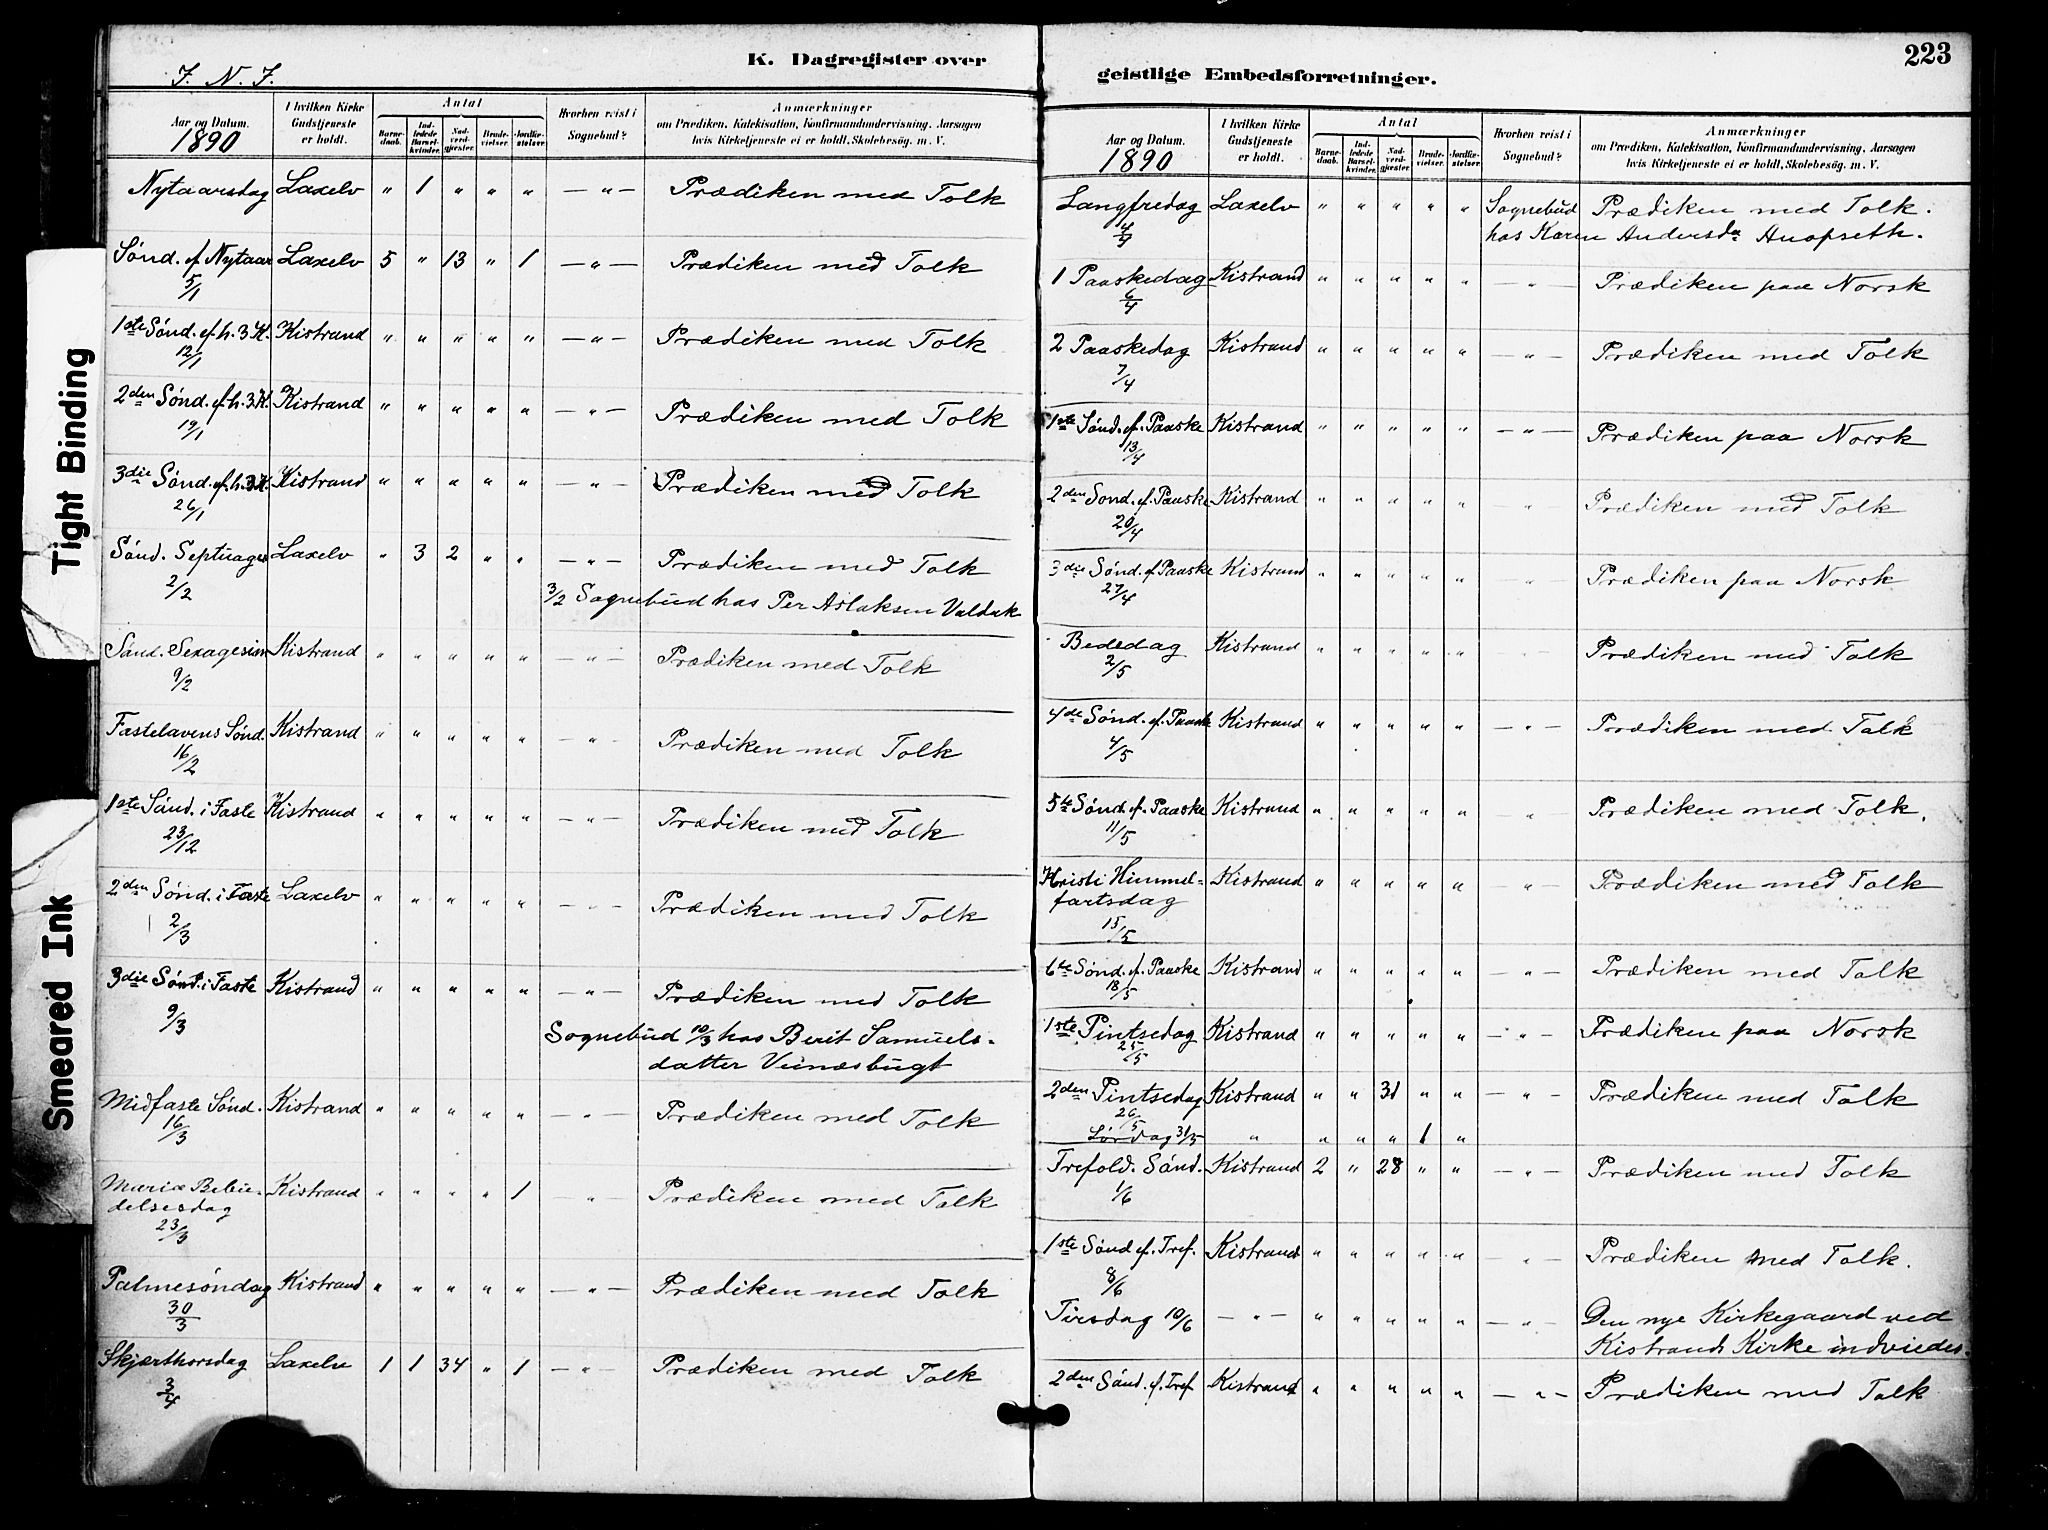 K. Dagregister over
J. N. J.
Aar og Datum. 1890 | I hvilken Kirke Gudstjeneste er holdt. | Antal | Barne-daab. | Ind-ledede Barsel-kvinder. | Nad-verd-gjæster. | Brude-vielser. | Jordfæ-stelser. | Hvorhen reist i Sognebud? | Anmærkninger om Prædiken, Katekisation, Konfirmandundervisning, Aarsagen hvis Kirketjeneste ei er holdt, Skolebesøg. m. V.
Nytaarsdag | Laxelv | " | 1 | " | " | " | — " — | Prædiken med Tolk
Sønd. ef Nytaar 5/1 | Laxelv | 5 | " | 13 | " | 1 | — " — | Prædiken med Tolk
1ste Sønd. ef. h. 3 K. 12/1 | Kistrand | " | " | " | " | " | — " — | Prædiken med Tolk
2den Sønd. ef. h. 3 K. 19/1 | Kistrand | " | " | " | " | " | — " — | Prædiken med Tolk
3die Sønd. ef. h. 3 K. 26/1 | Kistrand | " | " | " | " | " | — " — | Prædiken med Tolk
Sønd. Septuages 2/2 | Laxelv | " | 3 | 2 | " | " | — " — | Prædiken med Tolk
3/2 Sognebud hos Per Aslaksen Valdak
Sønd. Sexagesim 9/2 | Kistrand | " | " | " | " | " | — " — | Prædiken med Tolk
Fastelavens Sønd. 16/2 | Kistrand | " | " | " | " | " | — " — | Prædiken med Tolk
1ste Sønd. i Faste 23/12 | Kistrand | " | " | " | " | " | — " — | Prædiken med Tolk
2den Sønd. i Faste 2/3 | Laxelv | " | " | " | " | " | — " — | Prædiken med Tolk
3die Sønd. i Faste 9/3 | Kistrand | " | " | " | " | " | — " — | Prædiken med Tolk
Sognebud 10/3 hos Berit Samuels-
datter Veinæsbugt
Midfaste Sønd. 16/3 | Kistrand | " | " | " | " | " | — " — | Prædiken med Tolk
Mariæ Bebu-delsesdag 23/3 | Kistrand | " | " | " | " | 1 | " — | Prædiken med Tolk
Palmesøndag 30/3 | Kistrand | " | " | " | " | " | — " — | Prædiken med Tolk
Skjærthorsdag 3/4 | Laxelv | 1 | 1 | 34 | " | 1 | — " | Prædiken med Tolk
geistlige Embedsforretninger.
223
Aar og Datum. 1890 | I hvilken Kirke Gudstjeneste er holdt. | Antal | Barne-daab. | Ind-ledede Barsel-kvinder. | Nad-verd-gjæster. | Brude-vielser. | Jordfæ-stelser. | Hvorhen reist i Sognebud? | Anmærkninger om Prædiken, Katekisation, Konfirmandundervisning, Aarsagen hvis Kirketjeneste ei er holdt, Skolebesøg. m. V.
Langfredag 4/4 | Laxelv | " | " | " | " | " | Sognebud | Prædiken med Tolk.
hos Karen Andersda
1 Paaskedag 6/4 | Kistrand | " | " | " | " | " | — " — | Prædiken paa Norsk
2 Paaskedag 7/4 | Kistrand | " | " | " | " | " | — " — | Prædiken med Tolk
1ste Sønd. ef. Paaske 13/4 | Kistrand | " | " | " | " | " | — " — | Prædiken paa Norsk
2den Sønd. ef. Paaske 20/4 | Kistrand | " | " | " | " | " | — " — | Prædiken med Tolk
3die Sønd. ef Paaske 27/4 | Kistrand | " | " | " | " | " | " | Prædiken paa Norsk
Bededag 2/5 | Kistrand | " | " | " | " | " | — " — | Prædiken med Tolk
4de Sønd. ef. Paaske 4/5 | Kistrand | " | " | " | " | " | — " — | Prædiken med Tolk
5te Sønd. ef. Paaske 11/5 | Kistrand | " | " | " | " | " | — " — | Prædiken med Tolk.
Kristi Himmel-fartsdag 15/5 | Kistrand | " | " | " | " | " | — " — | Prædiken med Tolk
6te Sønd. ef. Paaske 18/5 | Kistrand | " | " | " | " | " | — " — | Prædiken med Tolk
1ste Pintsedag 25/5 | Kistrand | " | " | " | " | " | — " — | Prædiken paa Norsk
2den Pintsedag 26/5 | Kistrand | " | " | 31 | " | " | — " — | Prædiken med Tolk
Lørdag 31/5 | " | " | " | " | 1 | "
Trefold. Sønd. 1/6 | Kistrand | 2 | " | 28 | " | " | — " — | Prædiken med Tolk
1ste Sønd ef. Tref. 8/6 | Kistrand | " | " | " | " | " | — " — | Prædiken med Tolk.
Tirsdag 10/6 | — " — | " | " | " | " | " | — " — | Den nye Kirkegaard ved
Kistrands Kirke indviedes.
2den Sønd. ef. Tref | Kistrand | " | " | " | " | " | — " — | Prædiken med Tolk
Tight Binding
Smeared Ink